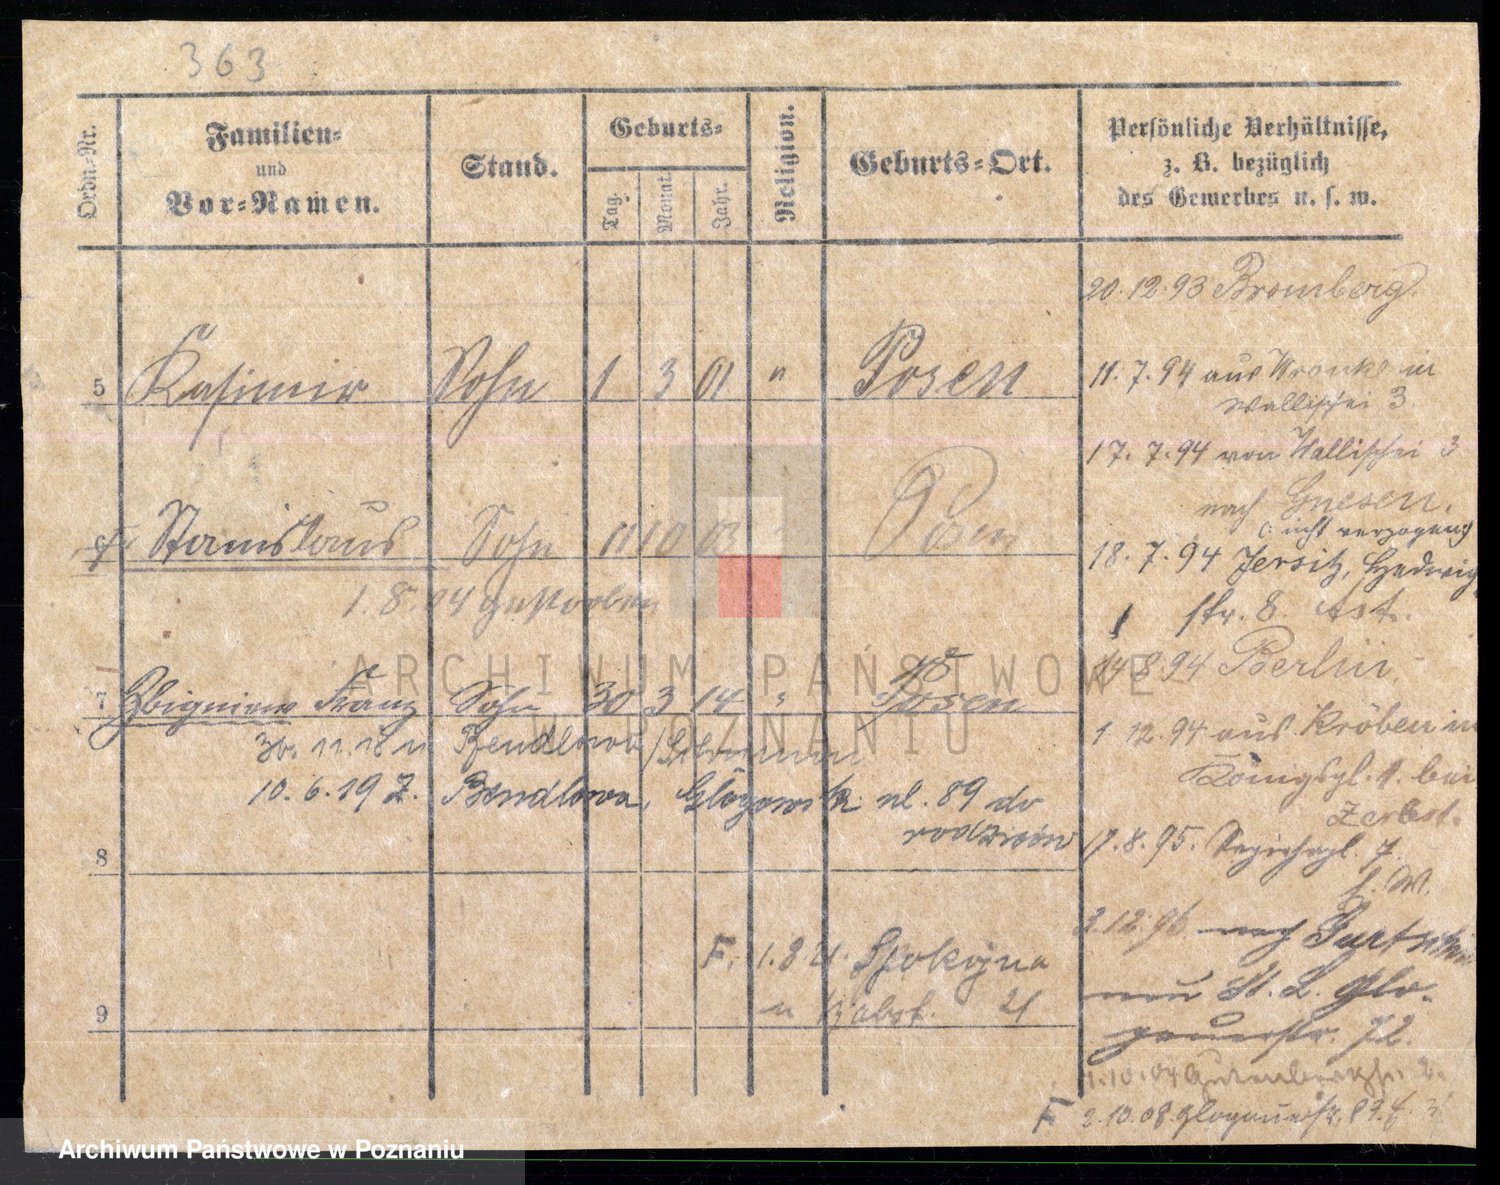 363
Ordn.-Nr.
Familien-
und
Vor-Namen.
Stand.
Geburts-
Tag.
Monat.
Jahr.
Religion.
Geburts-Ort.
Persönliche Verhältnisse,
z. B. bezüglich
des Gewerbes u. s. w.
20.12.93 Bromberg.
5 Kasimir Sohn 1 3 01 " Posen
11. 7. 94 aus Wronke in
Wallischei 3
17. 7. 94 von Wallischei 3
nach Gnesen.
6 Stanislaus Sohn 11 10 02 Posen
(nicht verzogen)
18. 7. 94 Jersitz, Hedwig
str. 8
1. 8. 04 gestorben
14 8 94 Berlin.
7 Zbigniew Franz Sohn 30 3 14 " Posen
1 12. 94 aus Kröben in
Königspl. bei
Zerbst.
10. 6. 19 z. Bendlewa, Glogowska ul. 89 do
rodziców
17. 8. 95. 7.
8
2.12.96 nach
St. L. Glo-
gauerstr. 72.
F. 1. 8 21. Spokojna
21
9
1.10.04
F 2.10.08. Glogauerstr. 89.
ARCHIWUM PAŃSTWOWE
W POZNANIU
Archiwum Państwowe w Poznaniu